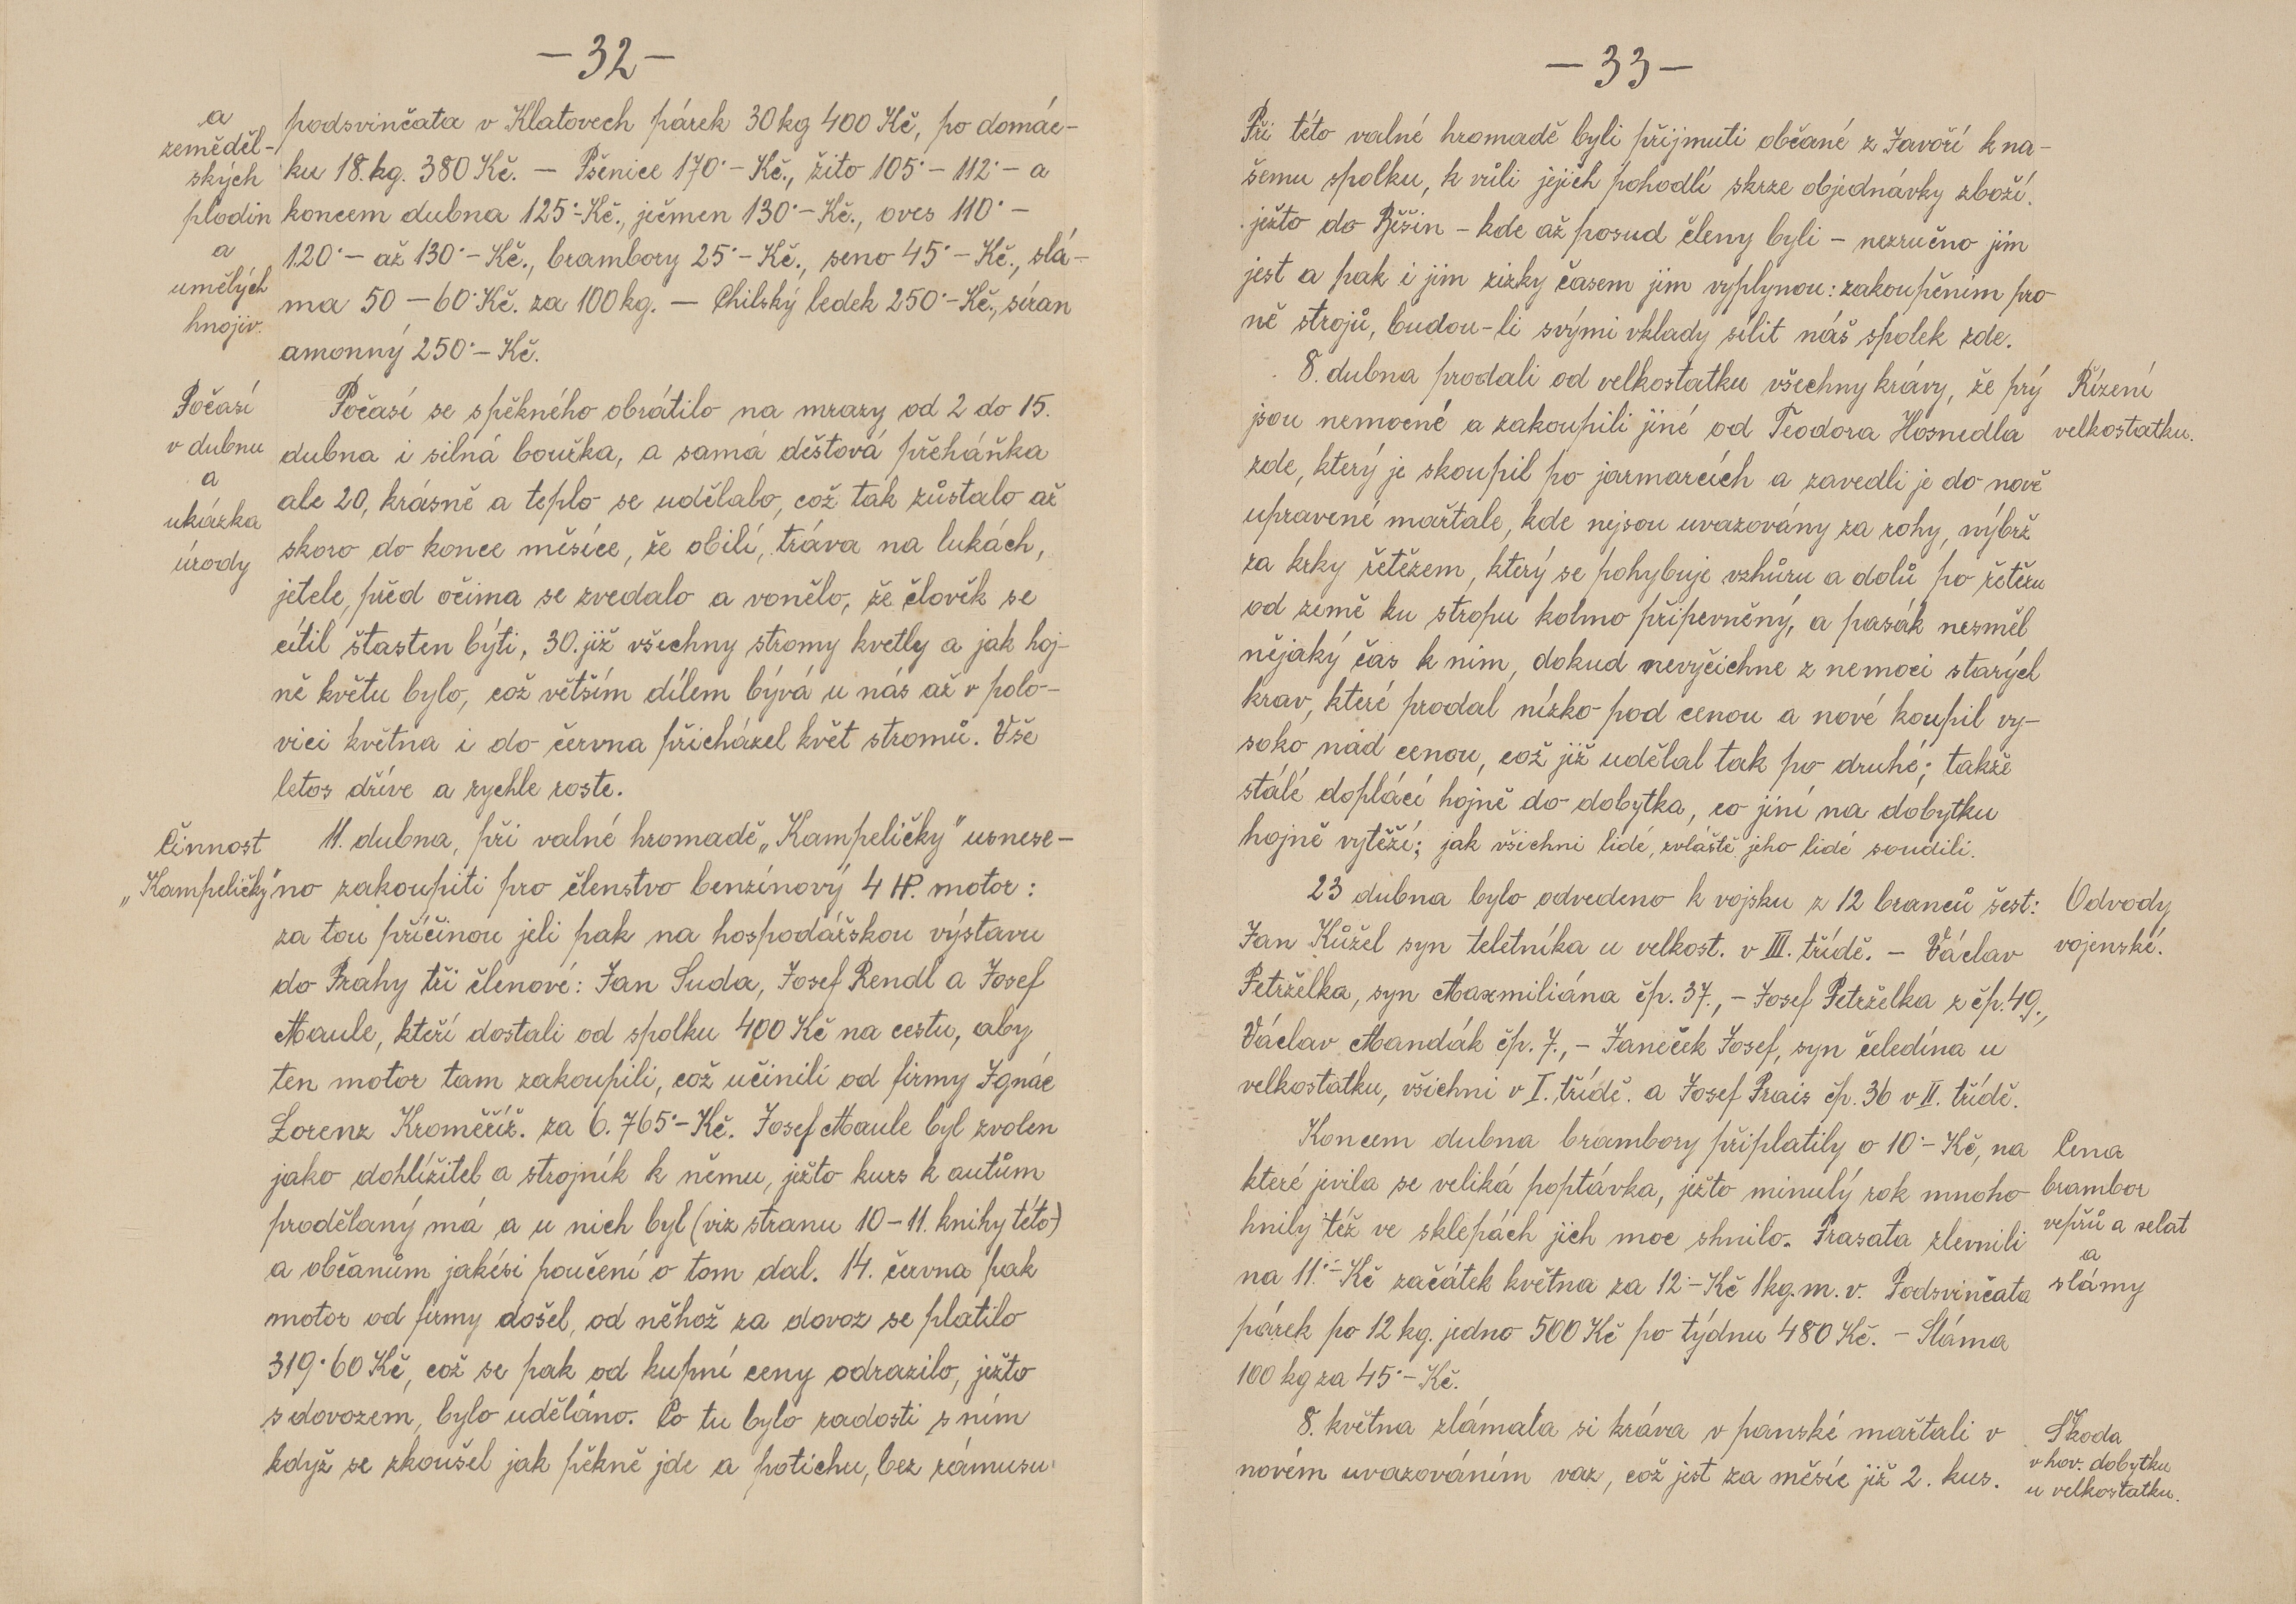 — 32 —
a
zeměděl-
ských
plodin
a
umělých
hnojiv.
podsvinčata v Klatovech párek 30 kg 400 Kč, po domác-
ku 18. kg. 380 Kč. — Pšenice 170·– Kč., žito 105·– 112·– a
koncem dubna 125·– Kč., ječmen 130·– Kč., oves 110·–
120·– až 130·– Kč., brambory 25·– Kč., seno 45·– Kč., slá-
ma 50 – 60· Kč. za 100 kg. — Chilský ledek 250·– Kč., síran
amonný 250·– Kč.
Počasí
v dubnu
a
ukázka
úrody
Počasí se spěkného obrátilo na mrazy od 2 do 15.
dubna i silná bouřka, a samá dešťová přeháňka
ale 20, krásně a teplo se udělalo, což tak zůstalo až
skoro do konce měsíce, že obilí, tráva na lukách,
jetele, před očima se zvedalo a vonělo, že člověk se
cítil šťasten býti, 30. již všechny stromy kvetly a jak hoj-
ně květu bylo, což větším dílem bývá u nás až v polo-
vici května i do června přicházel květ stromů. Vše
letos dříve a rychle roste.
Činnost
„Kampeličky"
11. dubna, při valné hromadě „Kampeličky" usnese-
no zakoupiti pro členstvo benzínový 4 HP. motor:
za tou příčinou jeli pak na hospodářskou výstavu
do Prahy tři členové: Jan Suda, Josef Rendl a Josef
Maule, kteří dostali od spolku 400 Kč na cestu, aby
ten motor tam zakoupili, což učinili od firmy Ignác
Lorenz Kroměříž. za 6.765·– Kč. Josef Maule byl zvolen
jako dohlížitel a strojník k němu, ježto kurs k autům
prodělaný má a u nich byl (viz stranu 10 – 11. knihy této)
a občanům jakési poučení o tom dal. 14. června pak
motor od firmy došel, od něhož za dovoz se platilo
319·60 Kč, což se pak od kupní ceny odrazilo, ježto
s dovozem, bylo uděláno. Co tu bylo radosti s ním
když se zkoušel jak pěkně jde a potichu, bez rámusu
— 33 —
Při této valné hromadě byli přijmuti občané z Javoří k na-
šemu spolku, k vůli jejich pohodlí skrze objednávky zboží.
ježto do Běšin – kde až posud členy byli – nezručno jim
jest a pak i jim zizky časem jim vyplynou: zakoupěním pro
ně strojů, budou-li svými vklady sílit náš spolek zde.
8. dubna prodali od velkostatku všechny krávy, že prý
jsou nemocné a zakoupili jiné od Teodora Hosnedla
zde, který je skoupil po jarmarcích a zavedli je do nově
upravené maštale, kde nejsou uvazovány za rohy, nýbrž
za krky řetězem, který se pohybuje vzhůru a dolů po řetězu
od země ku stropu kolmo připevněný, a pasák nesměl
nějaký čas k nim, dokud nevyčichne z nemoci starých
krav, které prodal nízko pod cenou a nové koupil vy-
soko nad cenou, což již udělal tak po druhé; takže
stálé doplácí hojně do dobytka, co jiní na dobytku
hojně vytěží; jak všichni lidé, zvláště jeho lidé soudili.
Řízení
velkostatku.
23 dubna bylo odvedeno k vojsku z 12 branců šest:
Jan Kůžel syn teletníka u velkost. v III. třídě. – Václav
Petrželka, syn Maxmiliána čp. 37., – Josef Petrželka z čp. 49.,
Václav Mandák čp. 7., – Janeček Josef, syn čeledína u
velkostatku, všichni v I. třídě. a Josef Prais čp. 36 v II. třídě.
Odvody
vojenské.
Koncem dubna brambory připlatily o 10·– Kč, na
které jevila se veliká poptávka, ježto minulý rok mnoho
hnily též ve sklepách jich moc shnilo. Prasata zlevnili
na 11·– Kč začátek května za 12·– Kč 1 kg. m. v. Podsvinčata
párek po 12 kg. jedno 500 Kč po týdnu 480 Kč. – Sláma
100 kg za 45·– Kč.
Cena
brambor
vepřů a selat
a
slámy
8. května zlámala si kráva v panské maštali v
novém uvazováním vaz, což jest za měsíc již 2. kus.
Škoda
v hov. dobytku
u velkostatku.